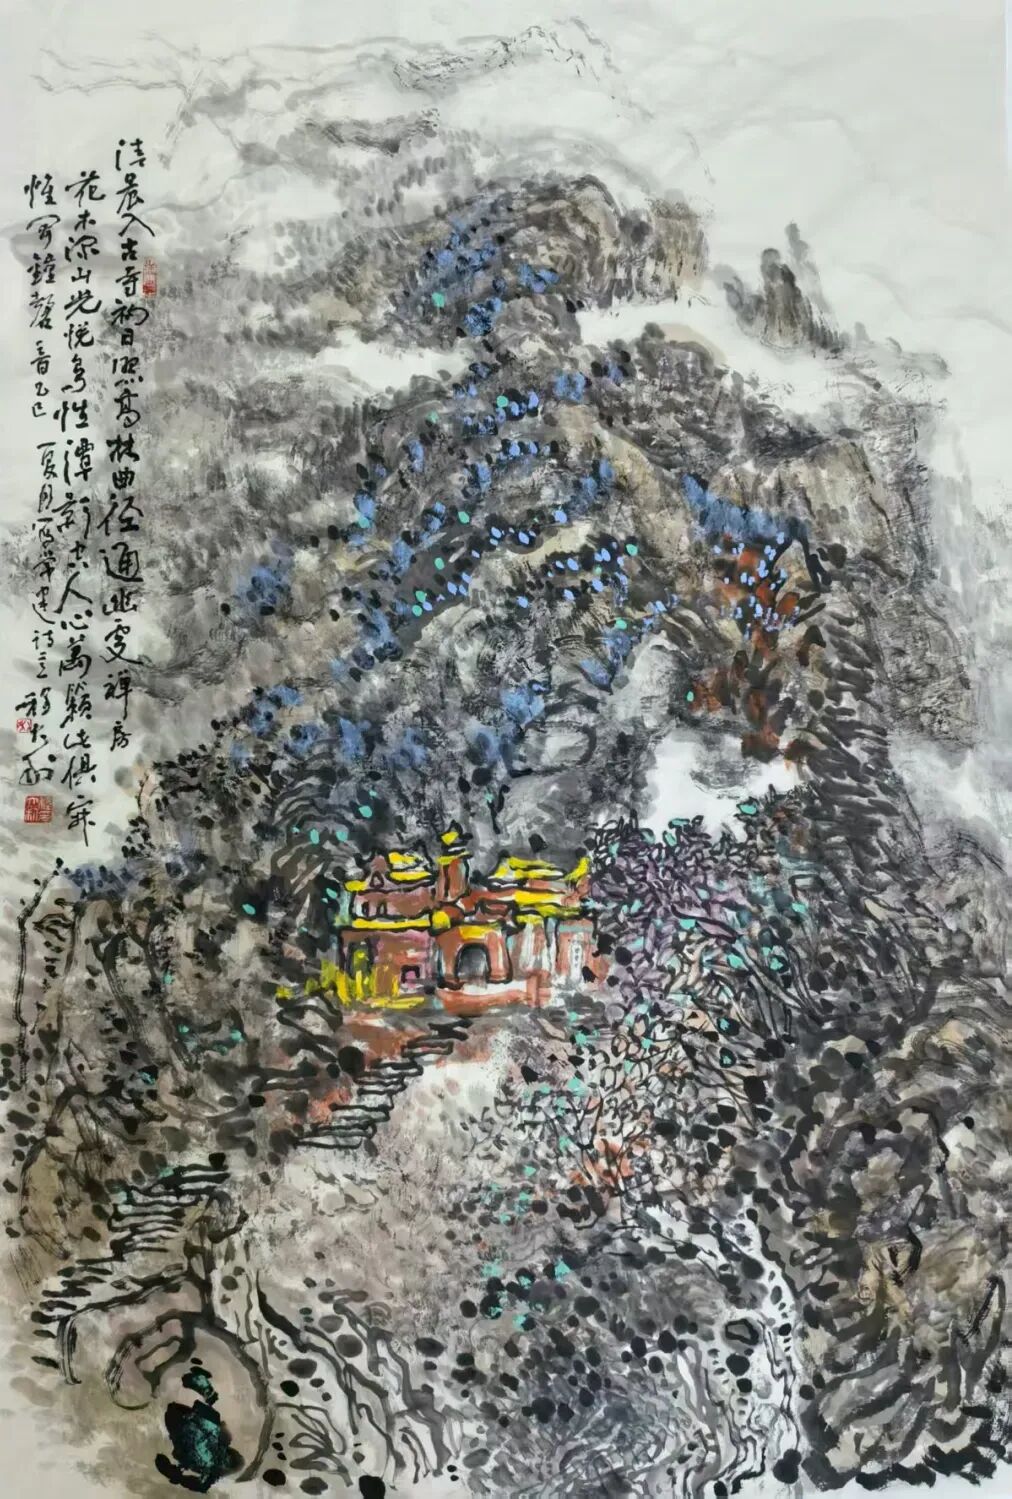 清晨入古寺初日照高林曲径通幽处禅房
花木深山光悦鸟性潭影空人心万籁此俱寂
惟闻钟磬音乙巳夏月写常建诗意